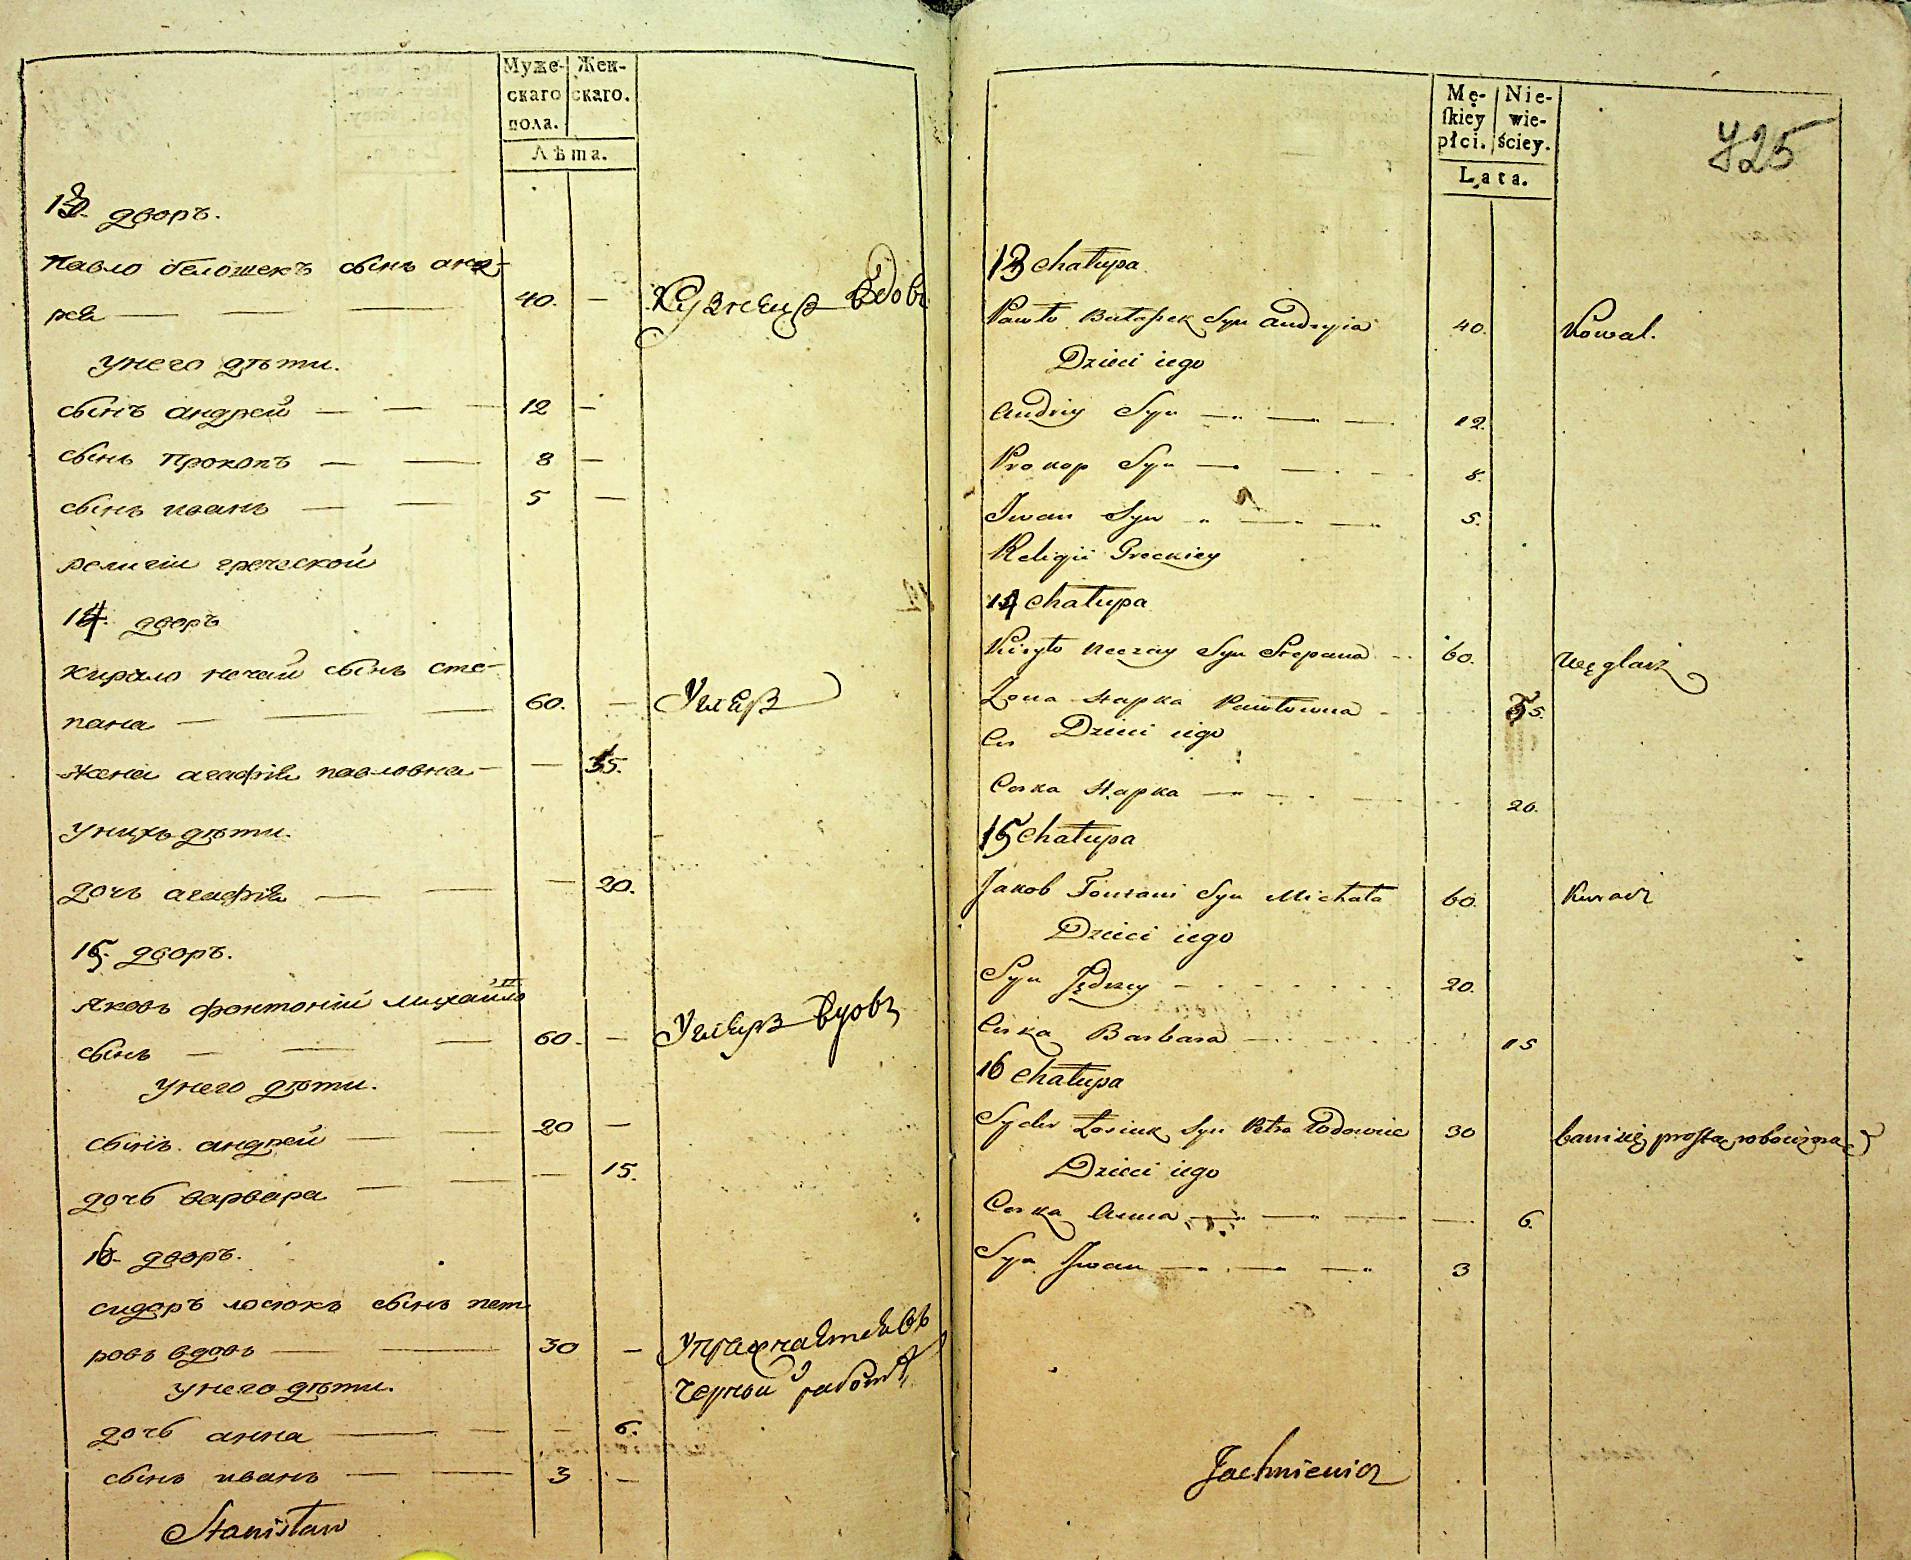 Муже-
скаго
пола.
Жен-
скаго.
Лѣта.
13. дворъ.
Павло белошекъ сынъ анд-
рея — — — 40. — Кузнецъ вдовъ
унего дѣти.
сынъ андрей — — — 12 —
сынъ прокопъ — — 8 —
сынъ иванъ — — 5 —
религiи греческой
14. дворъ
кирыло нечай сынъ сте-
пана — — — 60. — Углярз
жена агафiя павловна — — 55.
унихъ дѣти.
дочь агафiя — — — 20.
15. дворъ.
яковъ фонтонiй михайло
сынъ — — — 60. — вдовъ
унего дѣти.
сынъ андрей — — 20 —
дочь варвара — — — 15.
16. дворъ.
сидоръ лосюкъ сынъ пет
ровъ вдовъ — — 30 —
унего дѣти.
черной работѣ
дочь анна — — — 6.
сынъ иванъ — — 3 —
Stanisław
Mę-
skiey
płci.
Nie-
wie-
ściey.
Lata.
725
13 chałupa
Pawło Syn Andryia 40. Kowal.
Dzieci iego
Andriy Syn — — — 12.
Prokop Syn — — 8.
Iwan Syn — — — 5.
Religii Greckiey
14 chałupa
Kiryło Neczay Syn Stepana 60. Węglarz
Żona Hapka Pawłowna 55.
Dzieci iego
Corka Hapka — 20.
15 chałupa
Jakob Fontani Syn Michała 60.
Dzieci iego
Syn Jędrzey 20.
Corka Barbara 15
16 chałupa
Sydor Łosiuk Syn Petra Wdowiec 30 bawi się prostą robocizną
Dzieci iego
Corka Anna — — — — 6.
Syn Iwan — — — 3
Jachniewicz